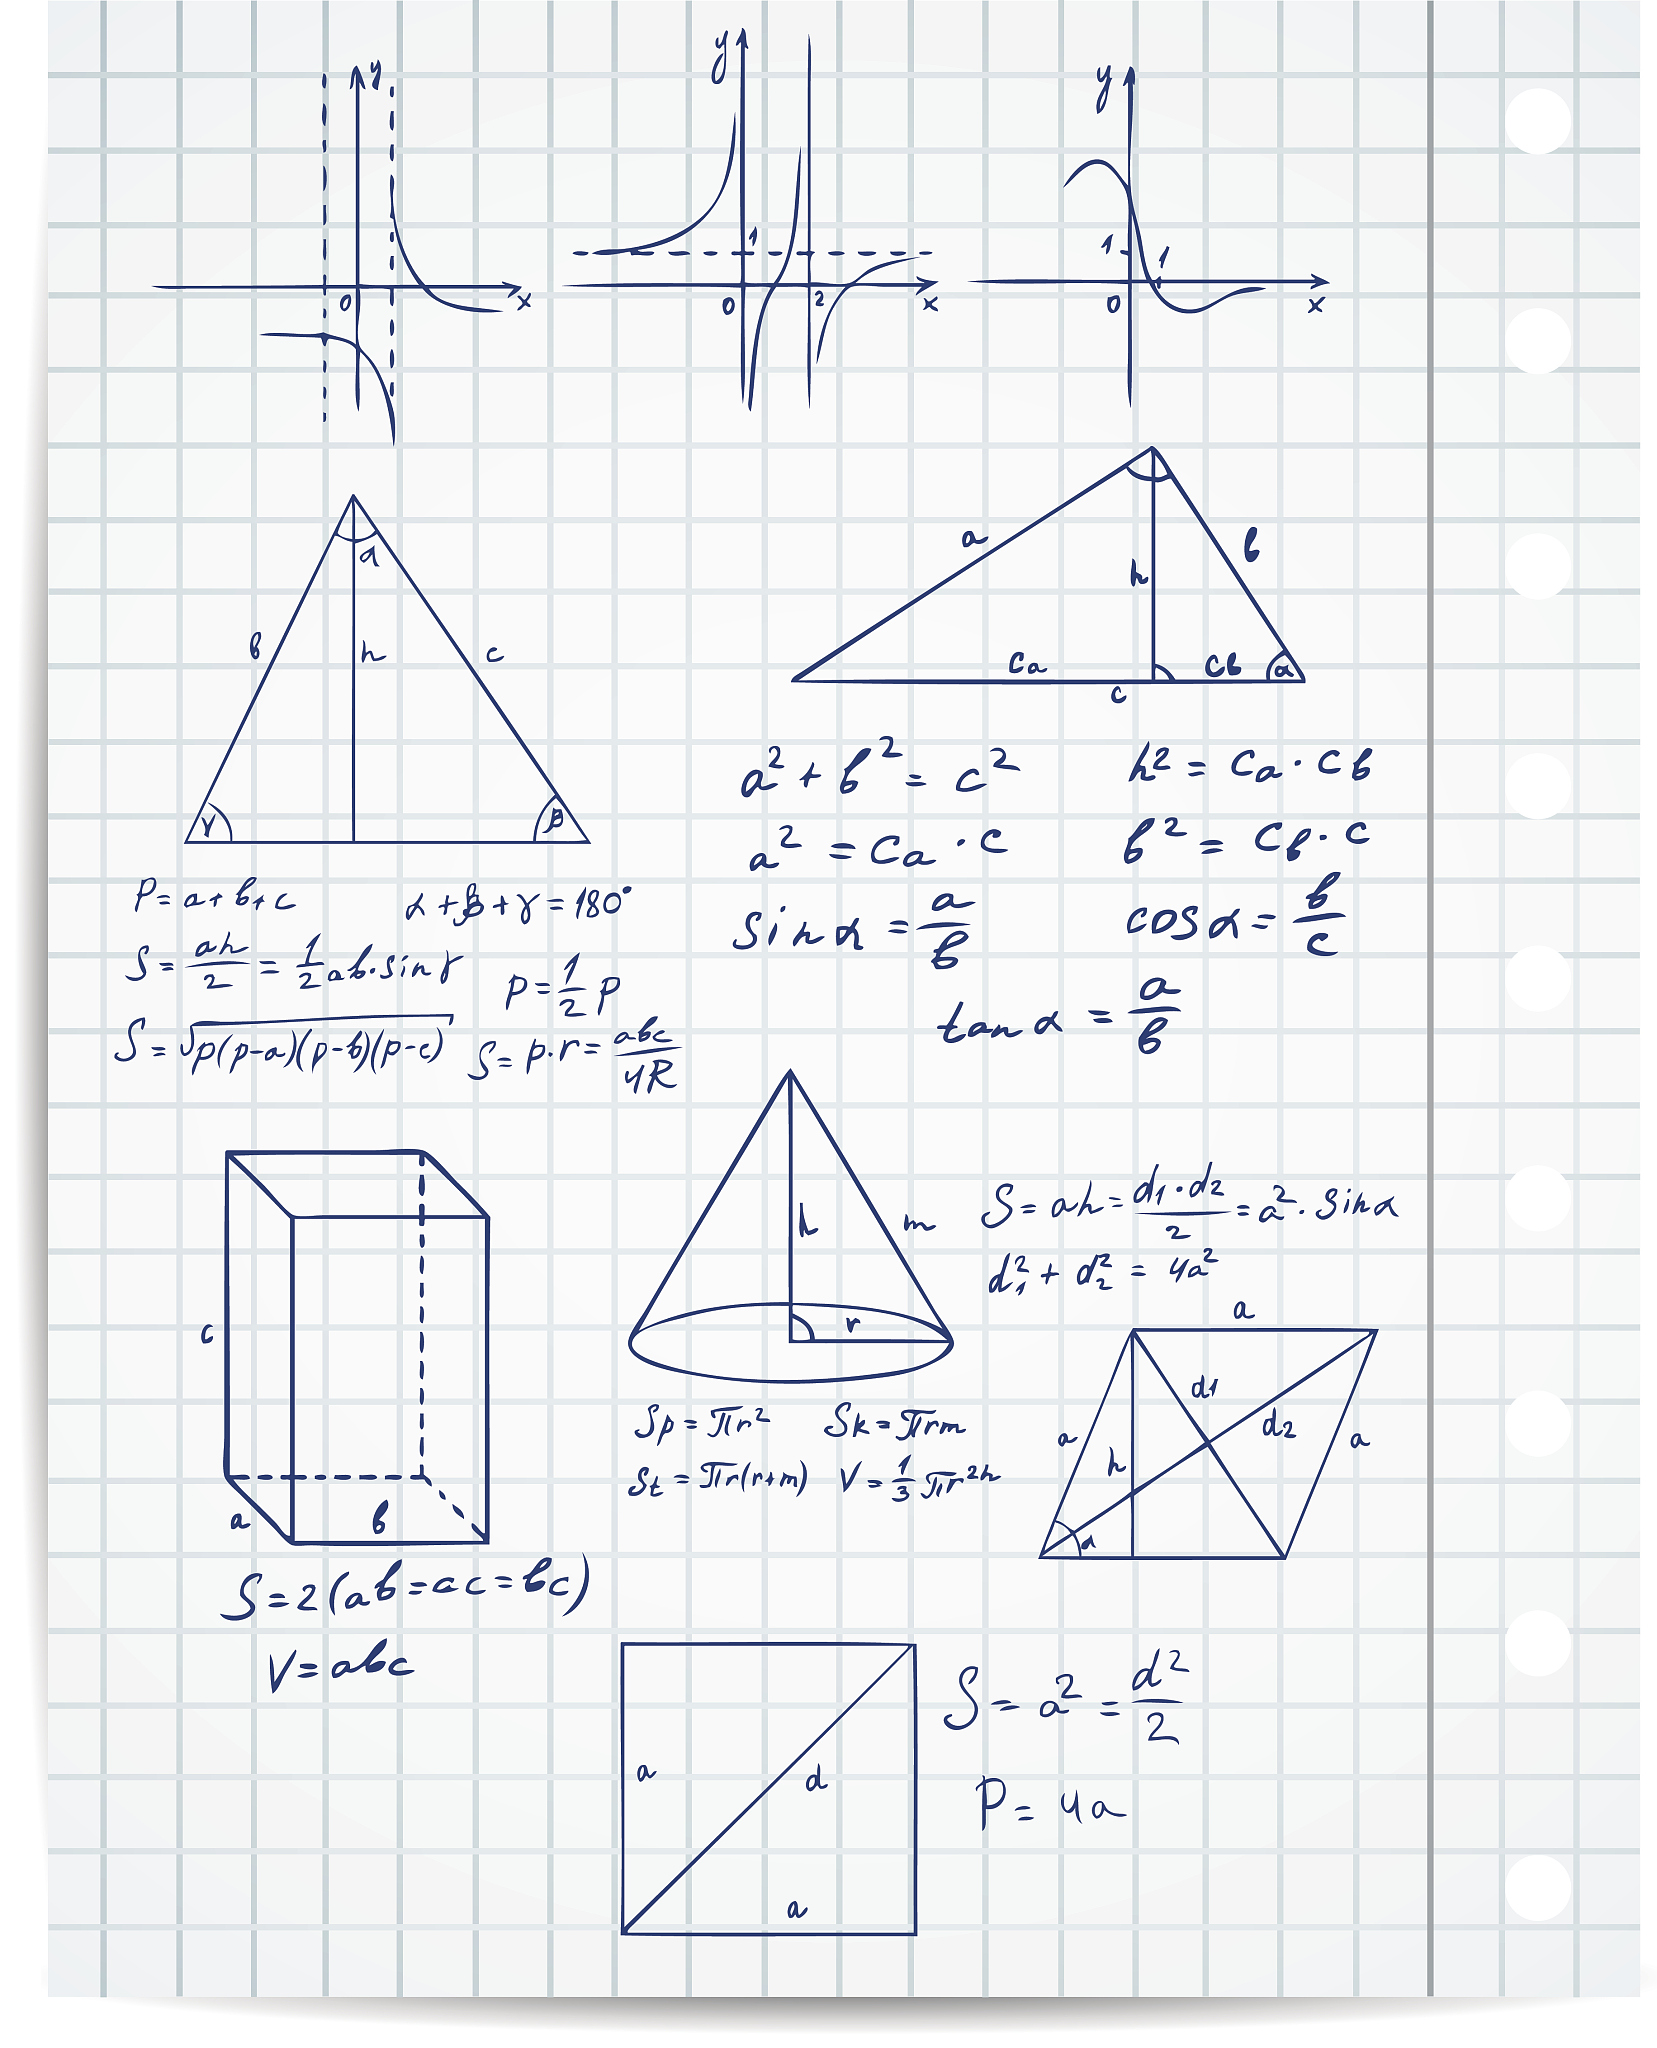 y
0
x
y
1
0
2
x
y
1
1
0
x
α
b
h
c
γ
β
a
b
h
Ca
Cb
α
c
P=a+b+c
α+β+γ=180°
S=ah/2=1/2ab·sinγ
p=1/2 P
S=√p(p-a)(p-b)(p-c)
S=p·r=abc/4R
a²+b²=c²
h²=Ca·Cb
a²=Ca·c
b²=Cb·c
sinα=a/b
cosα=b/c
tanα=a/b
c
a
b
S=2(ab=ac=bc)
V=abc
h
m
r
Sp=πr²
Sk=πrm
St=πr(r+m)
V=1/3πr²h
S=ah=d1·d2/2=a²·sinα
d1²+d2²=4a²
a
d1
d2
a
h
a
α
a
d
a
S=a²=d²/2
P=4a